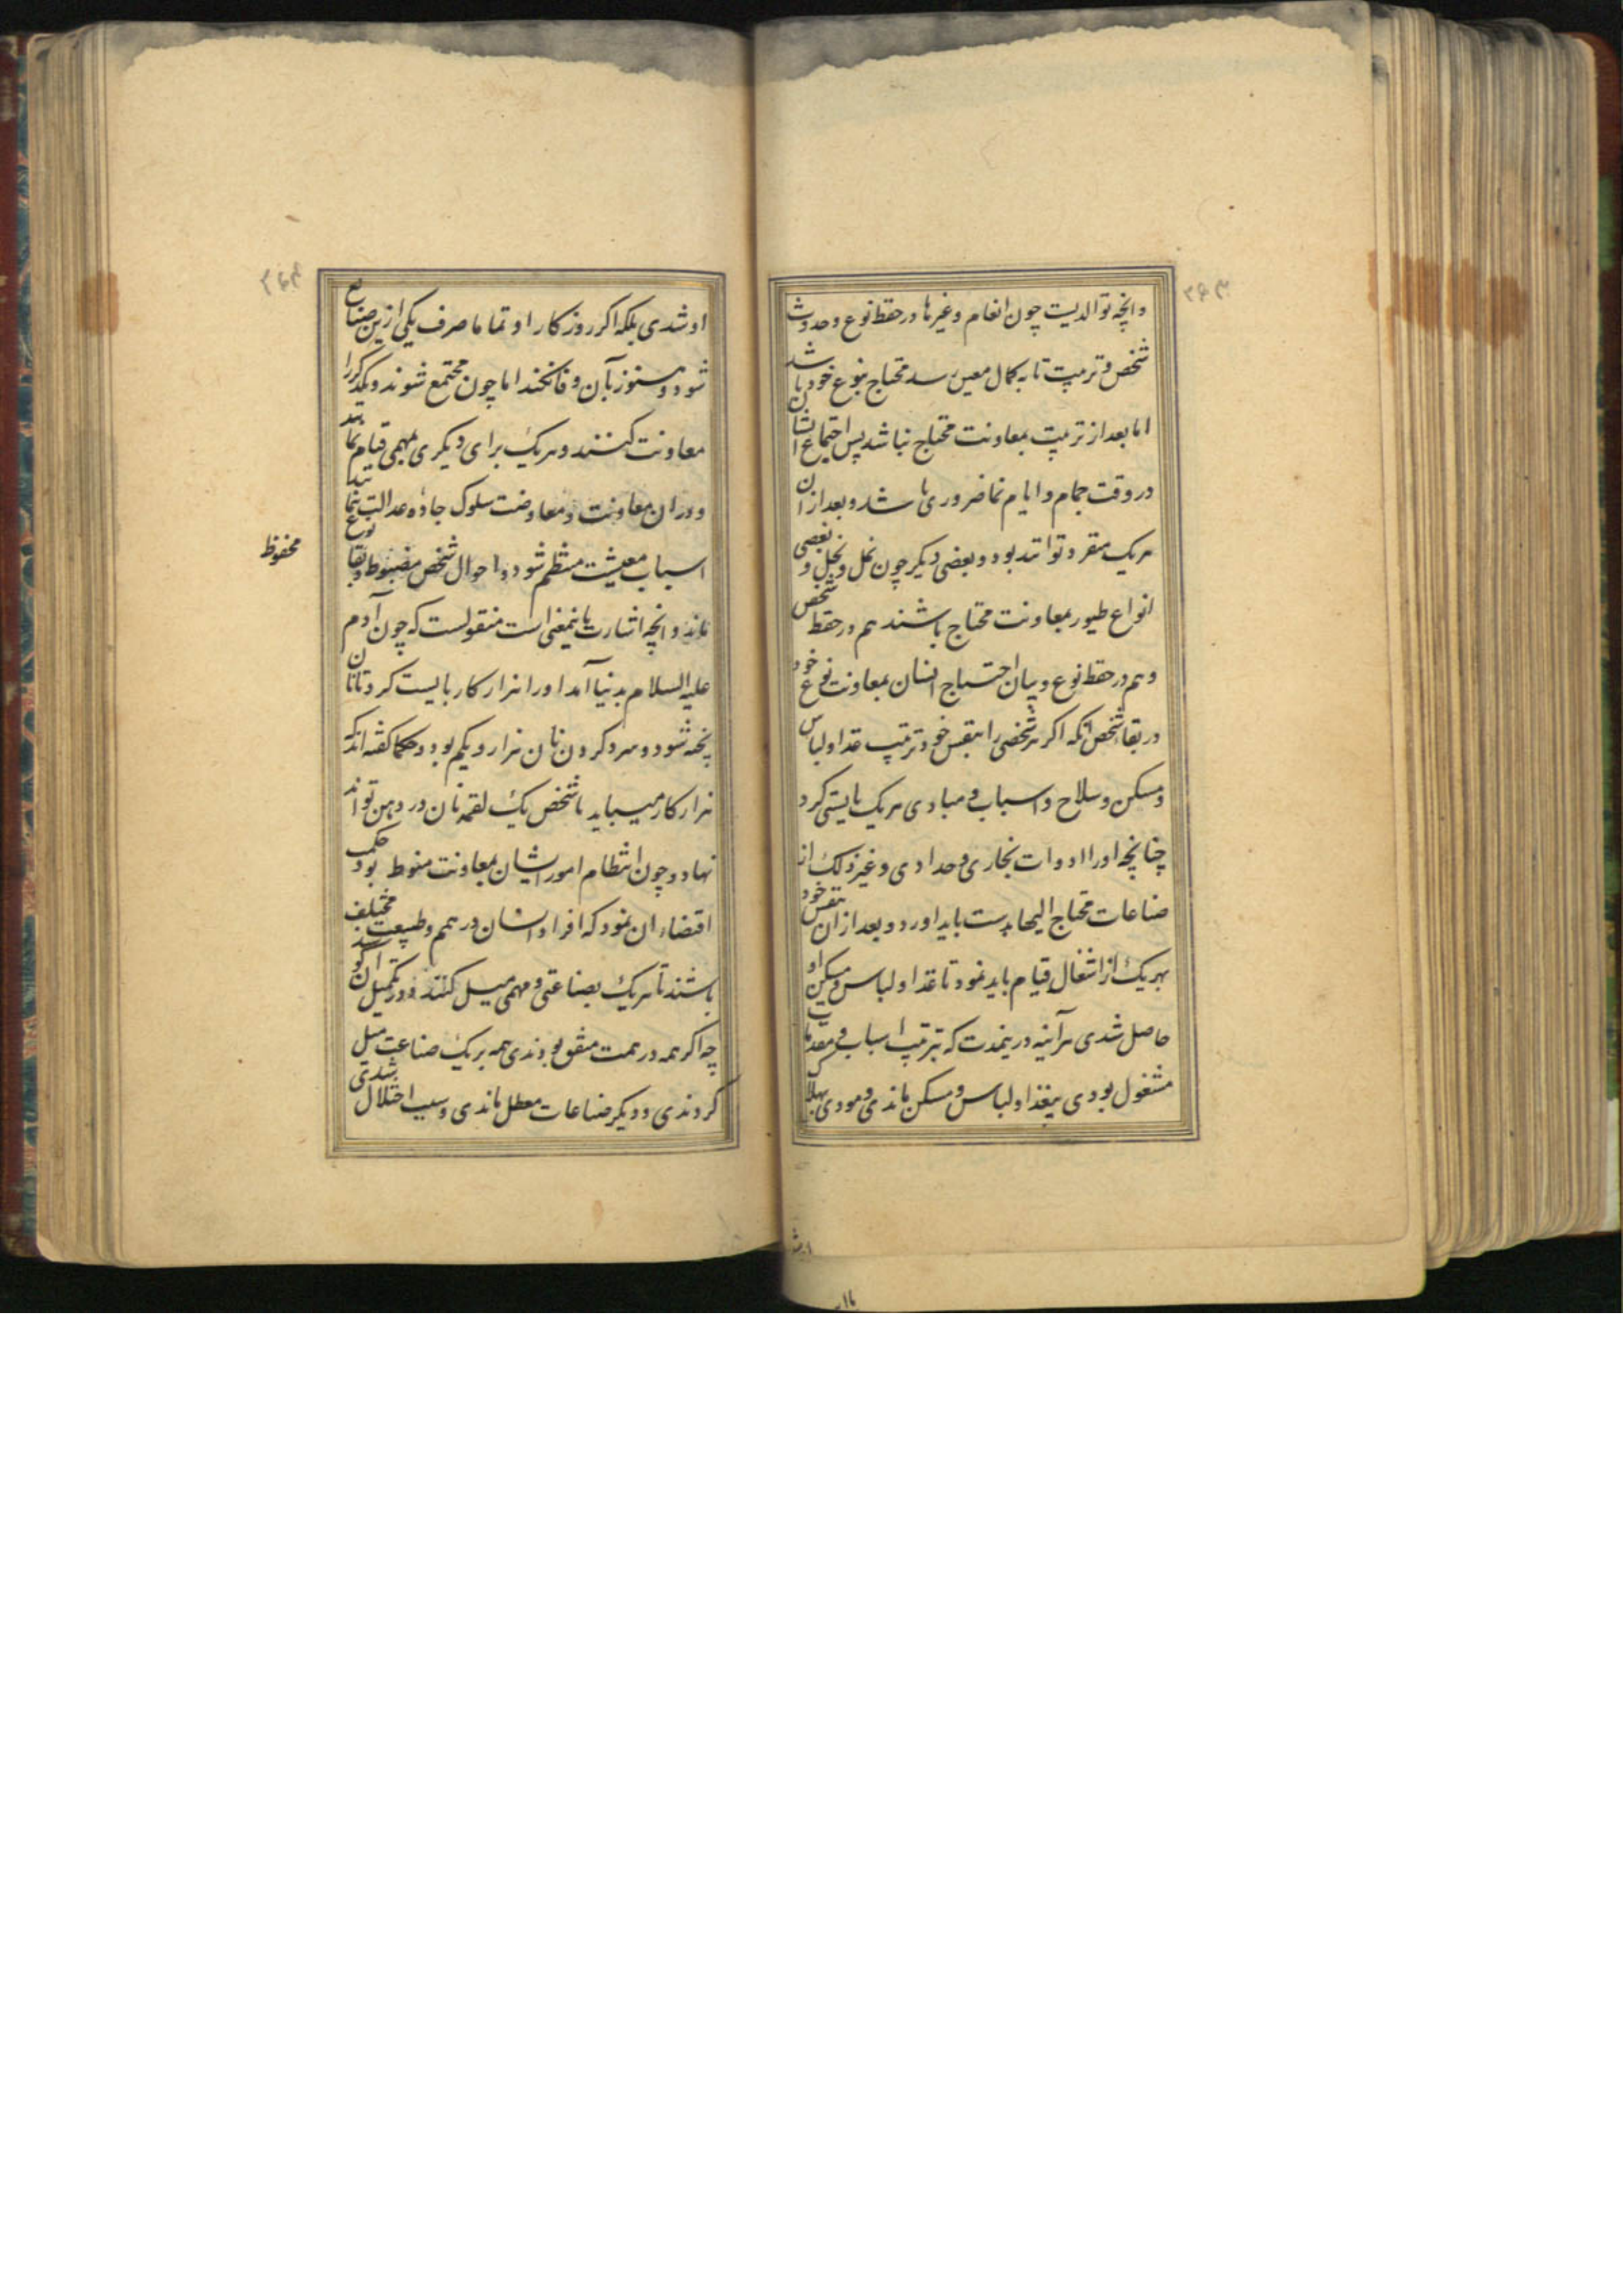 وانچه توالدیست چون انعام وغیرها در حفظ نوع وحدوث
شخص وتربیت تا به کمال معین رسد محتاج بنوع خود باشد
اما بعد از تربیت بمعاونت محتاج نباشد پس اجتماع ایشان
در وقت جماع وایام نما ضروری باشد وبعد از ان
هریک منفرد تواند بود وبعضی دیکر چون نمل ونحل وبعضی
انواع طیور بمعاونت محتاج باشند هم در حفظ شخص
وهم در حفظ نوع وبیان احتیاج انسان بمعاونت نوع خود
در بقاء شخص انکه اکر هر شخصی را بنفس خود ترتیب غذا ولباس
ومسکن وسلاح واسباب ومبادی هریک بایستی کرد
چنانچه اورا ادوات نجاری وحدادی وغیر ذلک از
صناعات محتاج الیها بدست باید اورد وبعد از ان بنفس خود
بهریک از اشغال قیام باید نمود تا غذا ولباس ومسکن او
حاصل شدی هرآینه درینمدت که بترتیب اسباب ومقدمات
مشغول بودی بیغذا ولباس ومسکن ماندی ومودی بهلاک
او شدی بلکه اکر روزکار او تماما صرف یکی ازین صنایع
شود هنوز بآن وفا نکند اما چون مجتمع شوند ویکدیکر را
معاونت کنند وهریک برای دیکری بمهمی قیام نماید
ودران معاونت ومعاوضت سلوک جادهٔ عدالت نمایند
اسباب معیشت منتظم شود واحوال شخص مضبوط وبقاء نوع
محفوظ
ماند وانچه اشارت باینمعنی است منقولست که چون آدم
علیه السلام بدنیا آمد اورا هزار کار بایست کرد تا نان
پخته شود وسرد کردن نان هزار ویکم بود وحکما کفته اند که
هزار کار میباید تا شخص یک لقمه نان در دهن تواند
نهاد وچون انتظام امور ایشان بمعاونت منوط بود حکمت
اقتضاء ان نمود که افراد انسان در همم وطبیعت مختلف
باشند تا هریک بصناعتی ومهمی میل کنند ودر تکمیل ان کوشند
چه اکر همه در همت متفق بودندی همه بریک صناعت میل
کردندی ودیکر صناعات معطل ماندی وسبب اختلال شدی